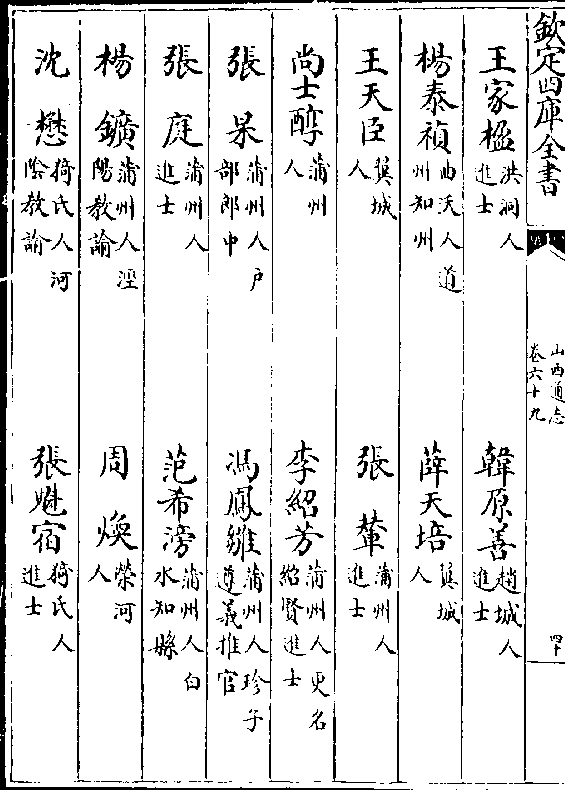 欽定四庫全書
山西通志
卷六十九
四十
王家楹洪洞人進士
韓原善趙城人進士
楊泰禎曲沃人道州知州
薛天培翼城人
王天臣翼城人
張輦蒲州人進士
尚士醇蒲州人
李紹芳蒲州人更名紹賢進士
張杲蒲州人户部郎中
馮鳳雛蒲州人珍子遵義推官
張庭蒲州人進士
范希滂蒲州人白水知縣
楊鑛蒲州人涇陽教諭
周煥榮河人
沈懋猗氏人河陰教諭
張魁宿猗氏人進士